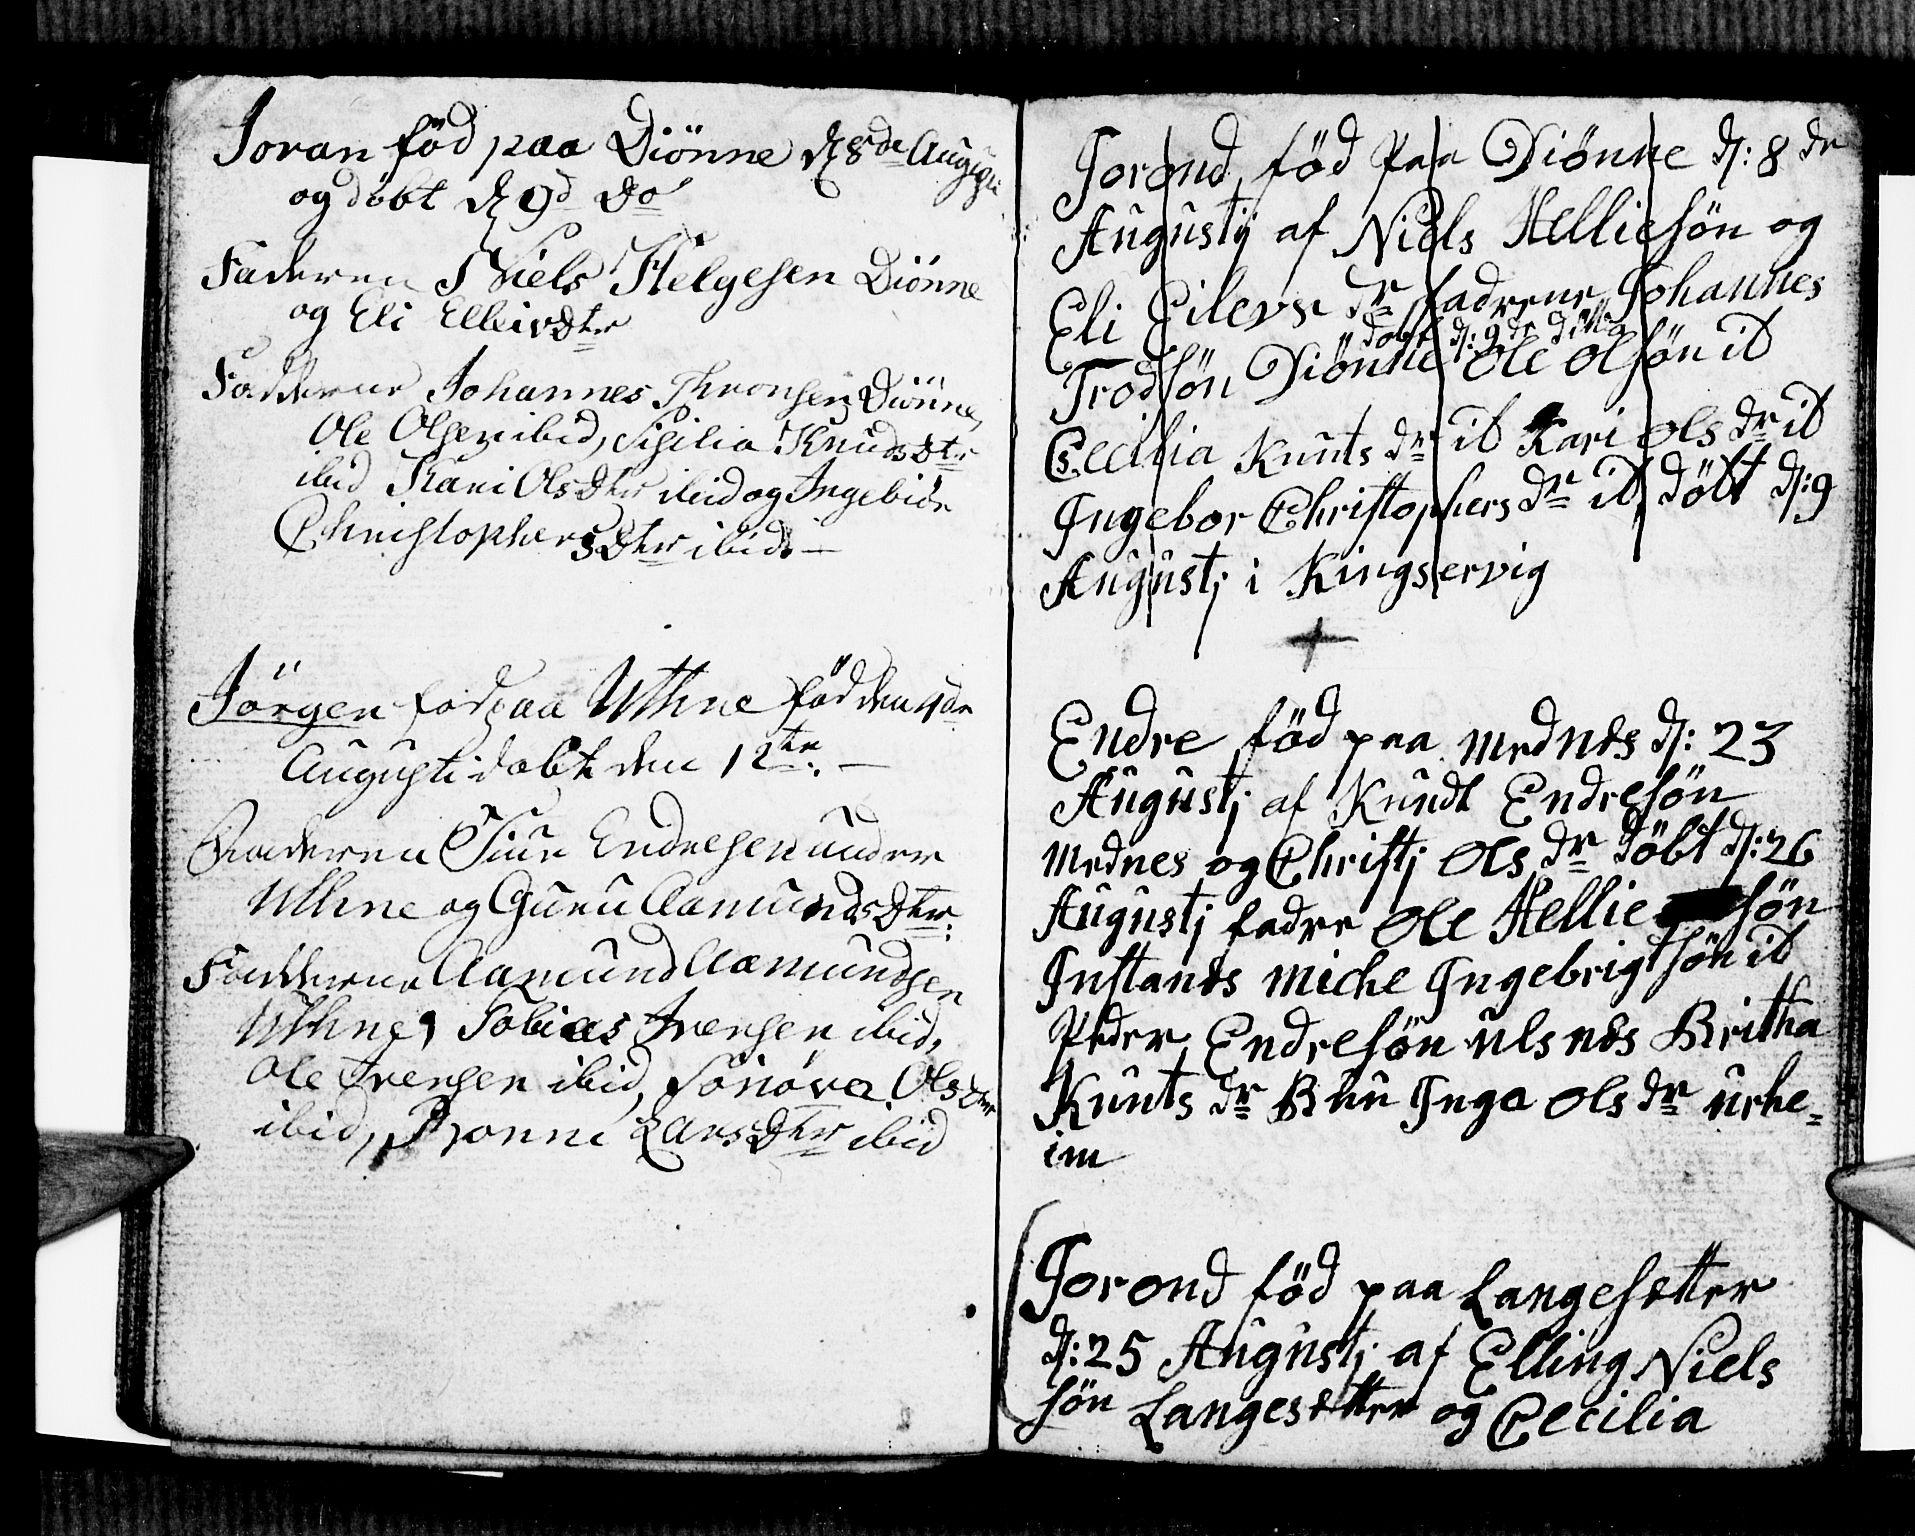 Joran fød paa Diønne d 8de Augusti
og døbt d 9d do
Faderen Niels Helgesen Diønne
og Eli Elleivdtr
Fadderne Johannes Thronsen Diønne,
Ole Olsen ibid, Sisilia Knudsdtr
ibid Kari Olsdtr ibid og Ingebiør
Christophersdtr ibid. —
Jörgen fød paa Uthne fød den 4de
Augusti døbt den 12te. —
Faderen Siur Endresen under
Uthne og Guru Aamundsdtr:
Fadderne Aamund Aamundsen
Uthne, Tobias Iversen ibid,
Ole Iversen ibid, Sönöva Olsdtr
ibid, Larsdtr ibid
Jorond fød paa Diønne d: 8 dr
Augustij af Niels Helliesøn og
Eli Eilevs dr fadrene Johannes
døbt d: 9 dr ditto
Trodsøn Diønne Ole Olsøn it
Cecilia Knuts dr it Kari Ols dr it
Ingebor Christophers dr it, døbt d: 9
Augustj i Kingservig
Endre fød paa Mednes d: 23
Augustj af Knudt Endresøn
Mednes og Christj Ols dr døbt d: 26
Augustj fadre Ole Hellie søn
Instanes Miche Ingebrigtsøn it
Peder Endresøn Ulsnes Britha
Knuts dr Buu Inga Ols dr Urhe=
im
Jorond fød paa Langesetter
d: 25 Augustj af Elling Niels
søn Langesetter og Cecilia